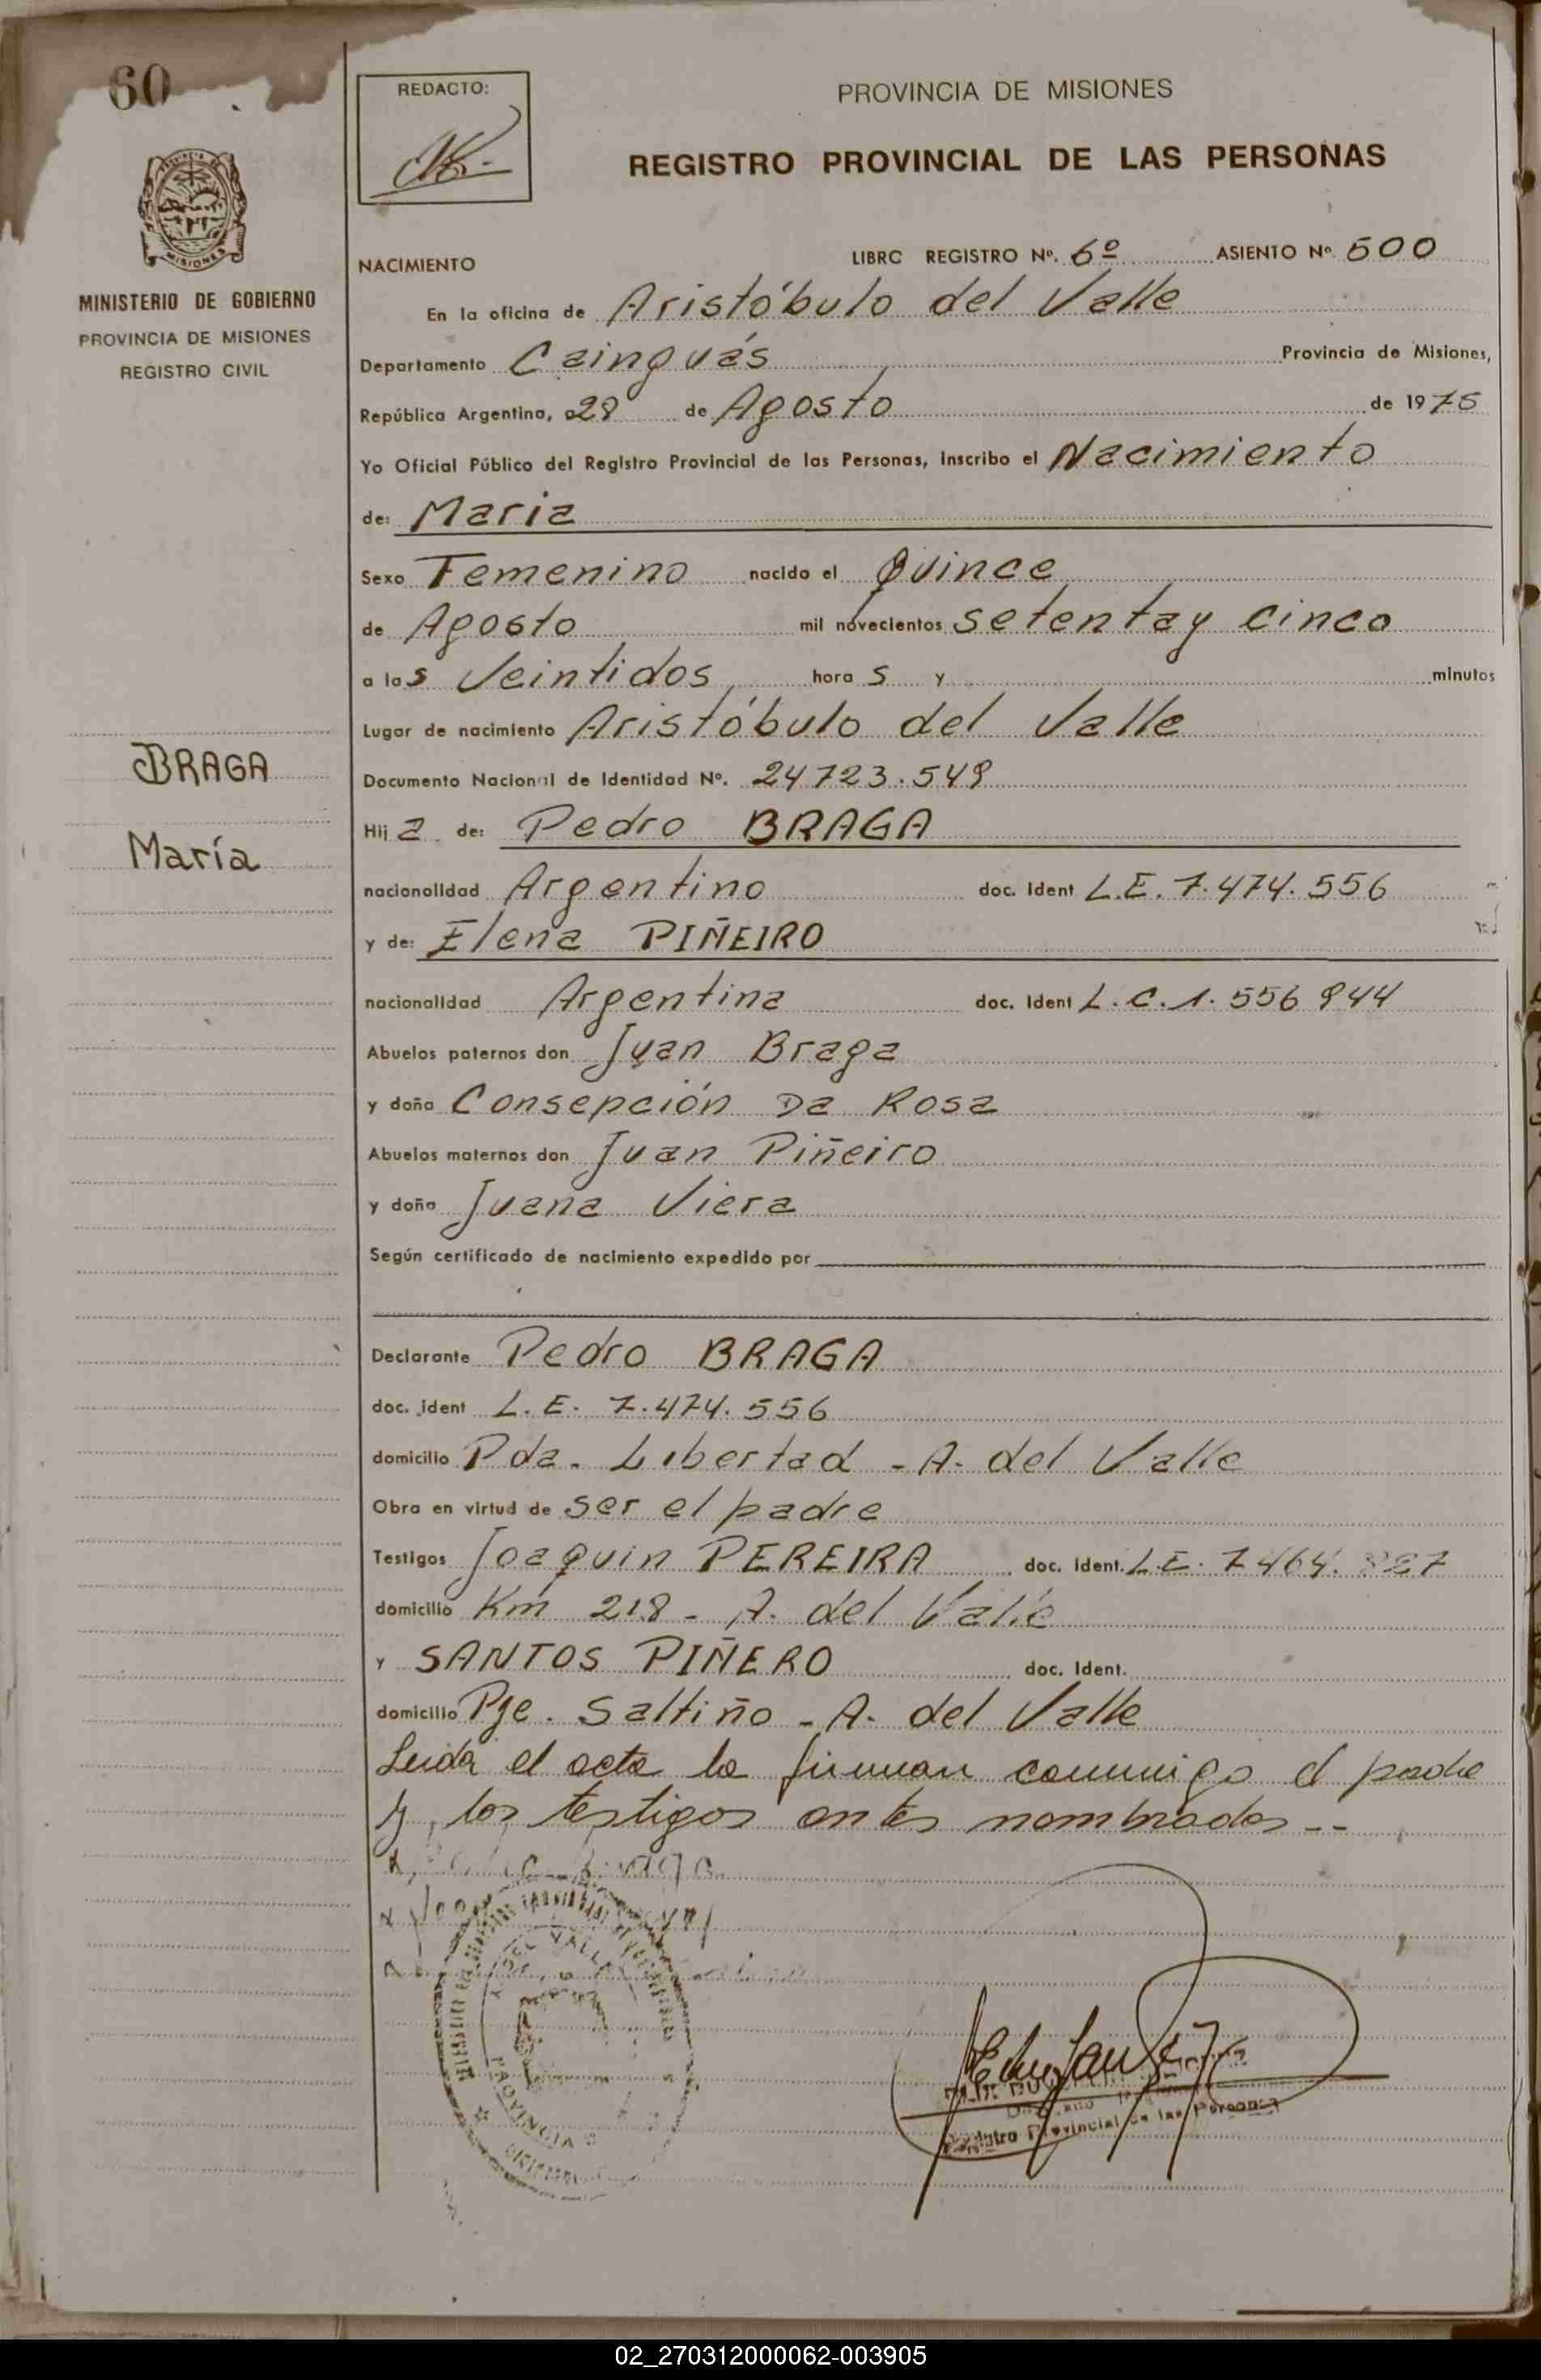 60
REDACTO:
PROVINCIA DE MISIONES
REGISTRO PROVINCIAL DE LAS PERSONAS
MISIONES
MINISTERIO DE GOBIERNO
PROVINCIA DE MISIONES
REGISTRO CIVIL
NACIMIENTO LIBRO REGISTRO Nº. 6º ASIENTO Nº. 500
En la oficina de Aristóbulo del Valle
Departamento Cainguás Provincia de Misiones,
República Argentina, a 28 de Agosto de 1975
Yo Oficial Público del Registro Provincial de las Personas, inscribo el Nacimiento
de: Maria
Sexo Femenino nacido el Quince
de Agosto mil novecientos setenta y cinco
a las Veintidos horas y minutos
Lugar de nacimiento Aristóbulo del Valle
Documento Nacional de Identidad Nº. 24723.549
BRAGA
María
Hija de: Pedro BRAGA
nacionalidad Argentino doc. Ident L.E. 7.474.556
y de: Elena PIÑEIRO
nacionalidad Argentina doc. Ident L.C. 1.556 944
Abuelos paternos don Juan Braga
y doña Consepción Da Rosa
Abuelos maternos don Juan Piñeiro
y doña Juana Viera
Según certificado de nacimiento expedido por
Declarante Pedro BRAGA
doc. ident L.E. 7.474.556
domicilio Pda. Libertad - A. del Valle
Obra en virtud de ser el padre
Testigos Joaquin PEREIRA doc. Ident. L.E. 7464.
domicilio Km 218 - A. del Valle
y SANTOS PIÑERO doc. Ident.
domicilio Pje. Saltiño - A. del Valle
Leida el acta la firman conmigo el padre
y los testigos antes nombrados --
DEL VALLE
PROVINCIA
Registro Provincial de las Personas
02_270312000062-003905